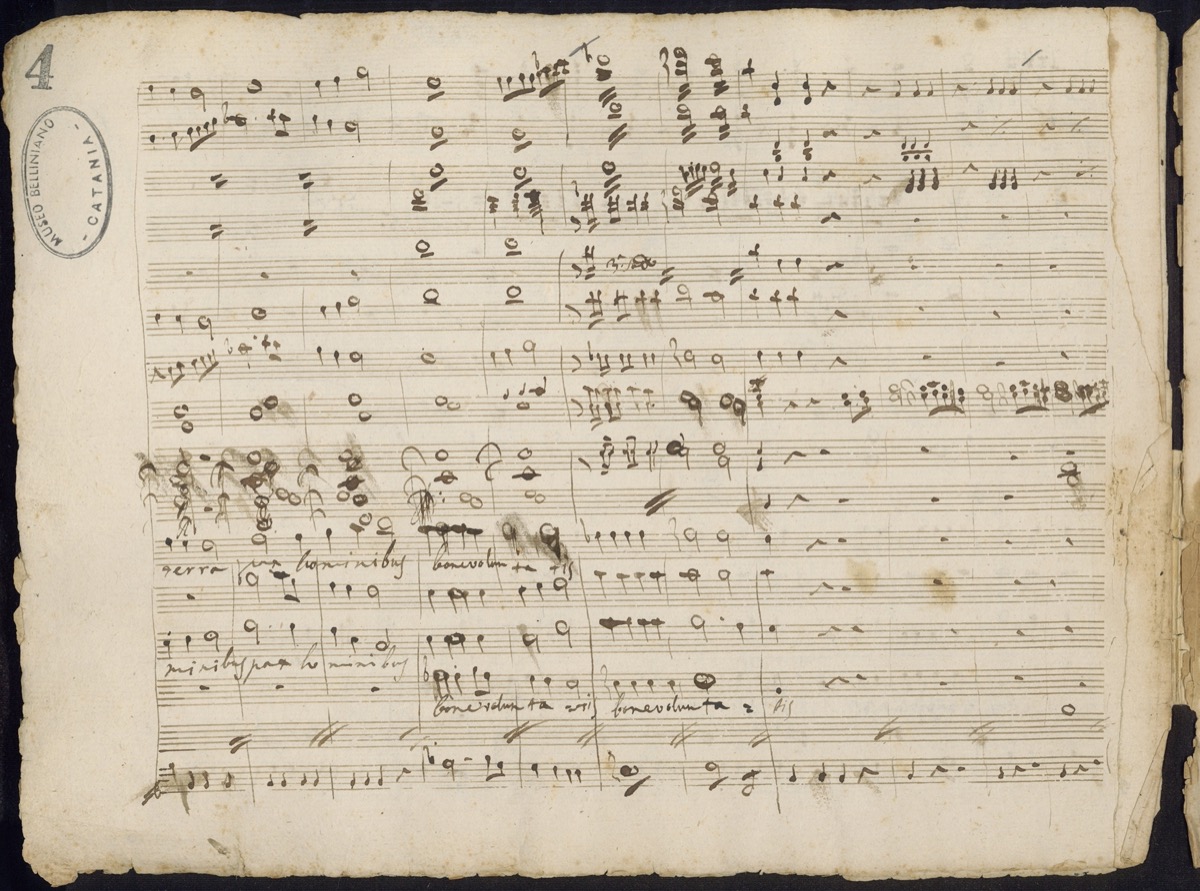 4
MUSEO BELLINIANO
- CATANIA -
terra pax hominibus bonevolun ta tis
minibus pax ho minibus
bonevolun ta tis bonevolun ta tis